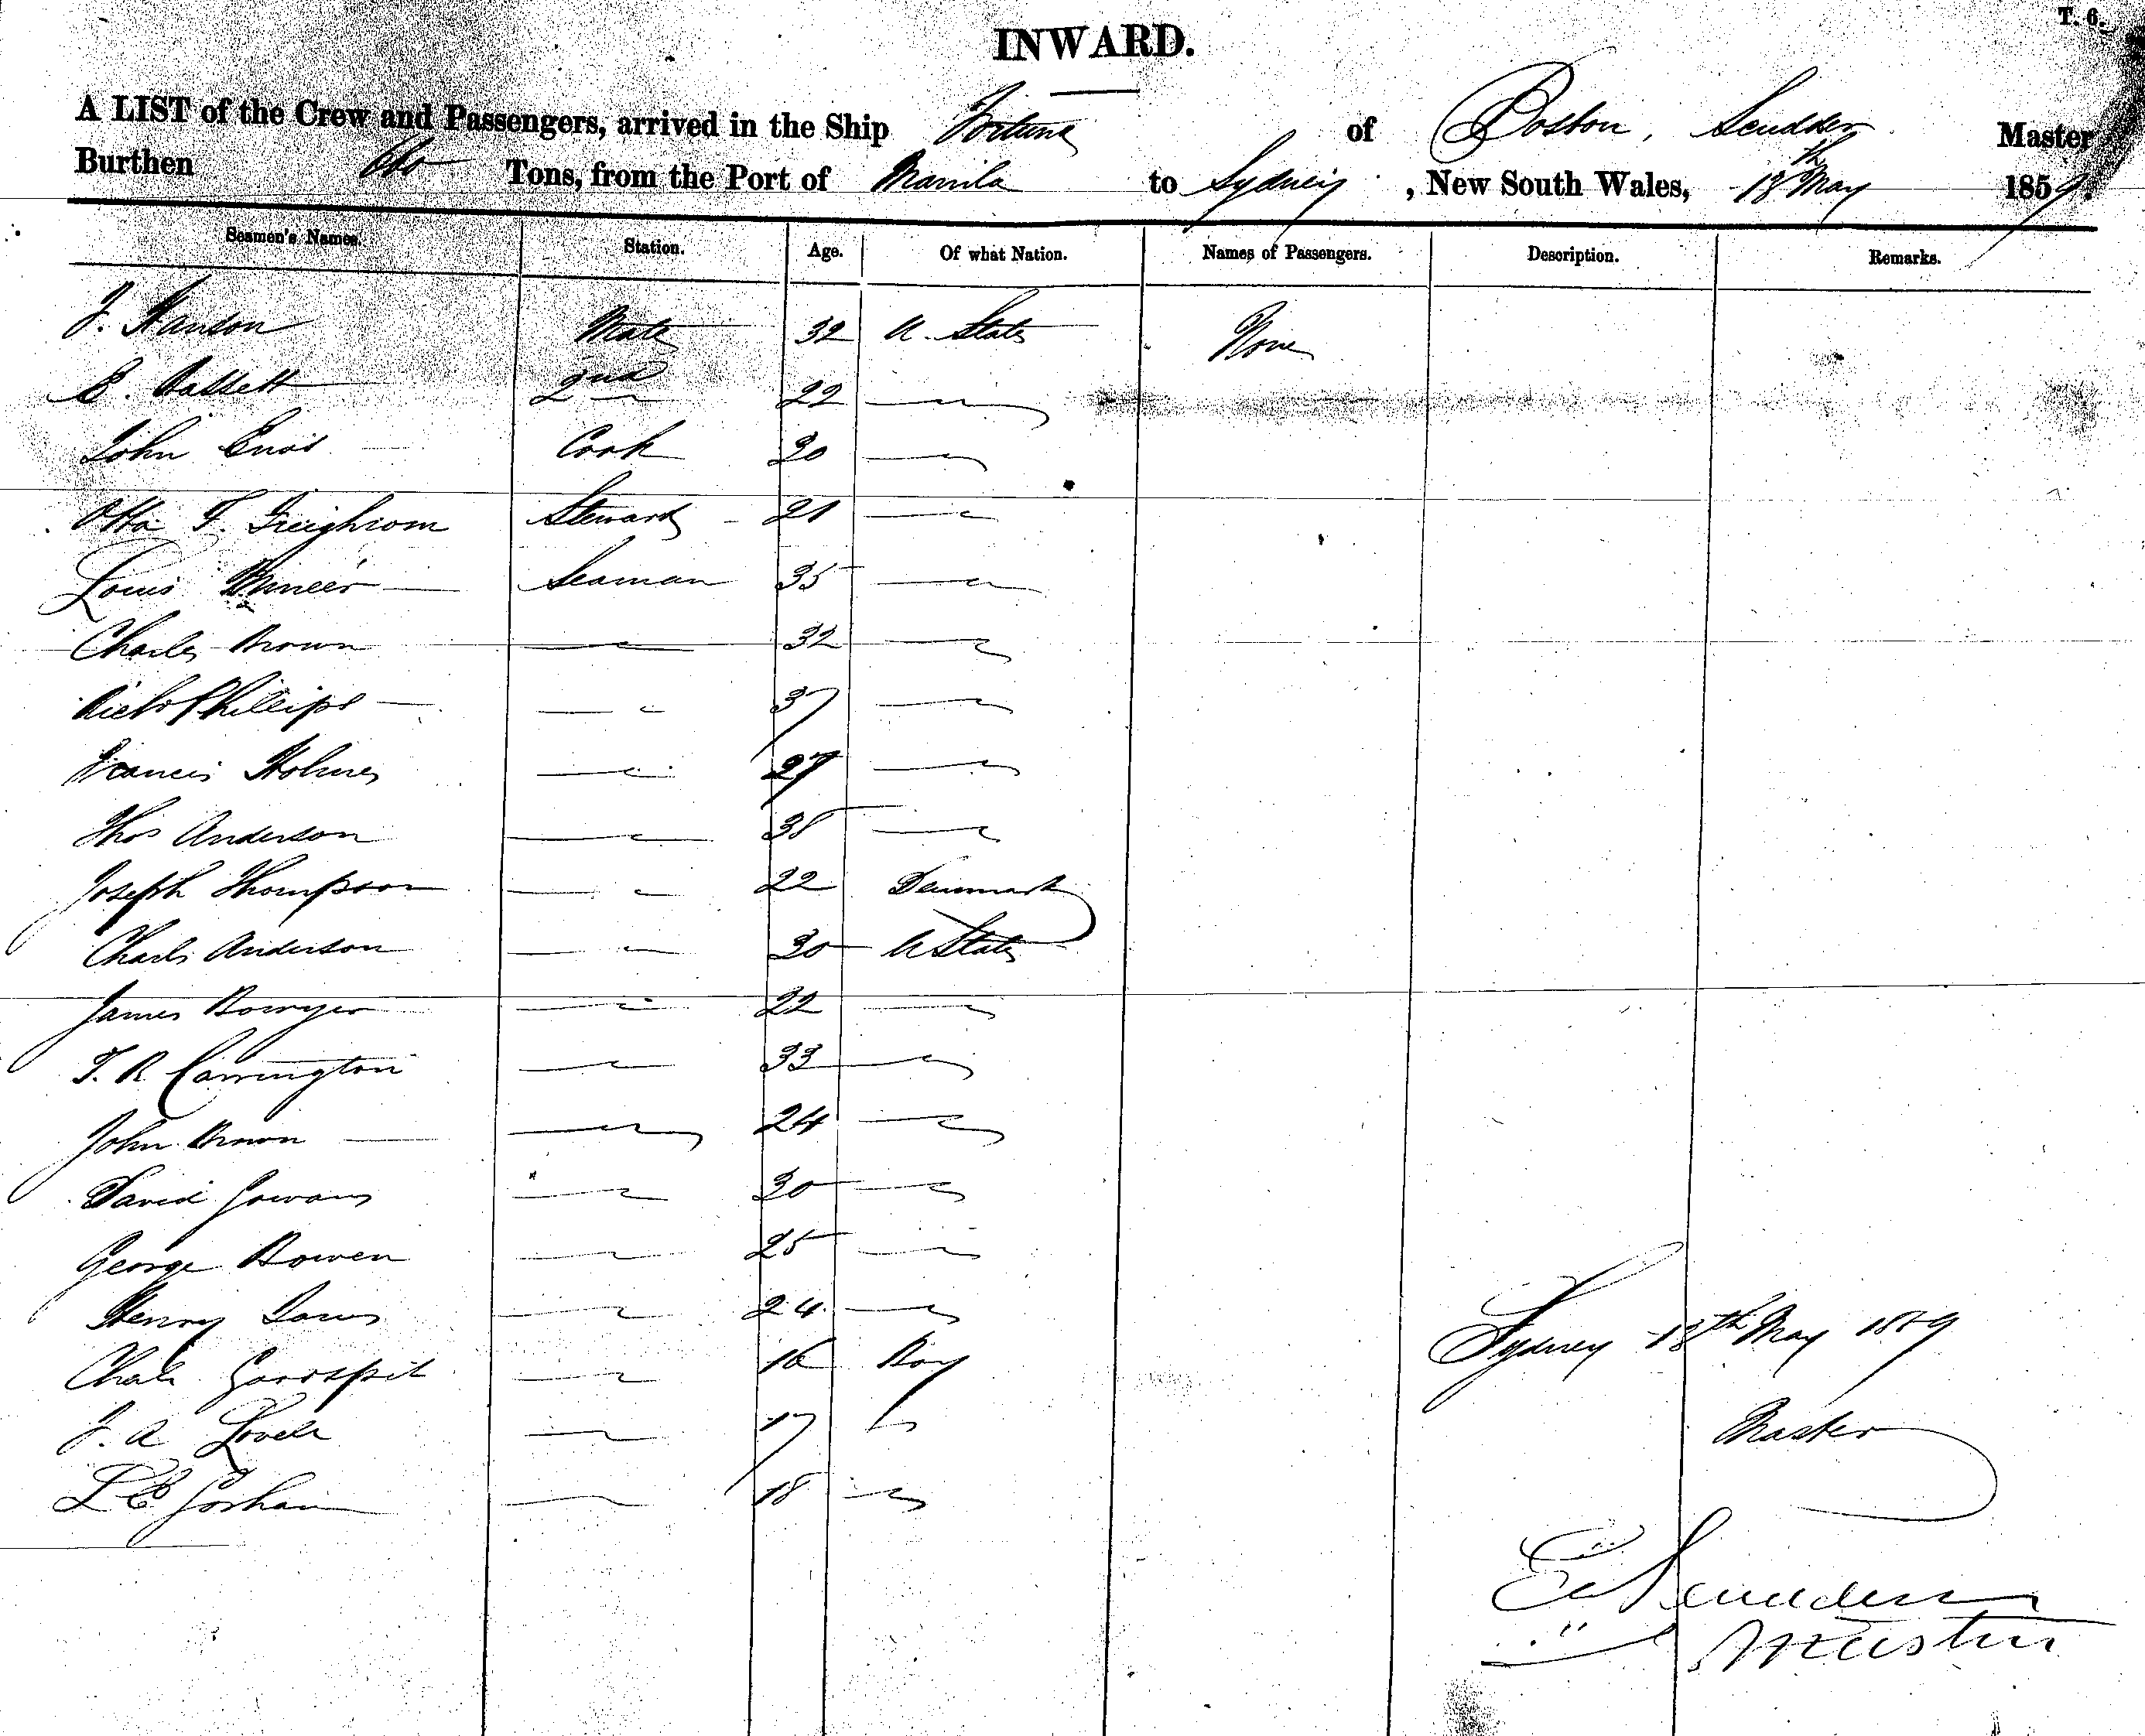 T. 6.
INWARD.
A LIST of the Crew and Passengers, arrived in the Ship Fortuna of Boston, Scudder Master
Burthen Tons, from the Port of Manila to Sydney, New South Wales, 18th May 1859.
Seamen's Names. Station. Age. Of what Nation. Names of Passengers. Description. Remarks.
J. Hanson Mate 32 U. States None
E. Bassett 2nd 22
John Enos Cook 30
Otto F. Steward 21
Louis Seaman 35
Charles Brown 32
Richd Phillips 37
Francis Holmes 27
Thos Anderson 38
Joseph Thompson 22 Denmark
Charls Anderson 30 U States
James Bowyer 22
T. R. Carrington 33
John Brown 24
David Gowans 30
George Bowen 25
Henry 24
Charls 16 Boy
J. A. Lovell 17
L E Gorham 18
Sydney 18th May 1859
Master
E Scudder
Master